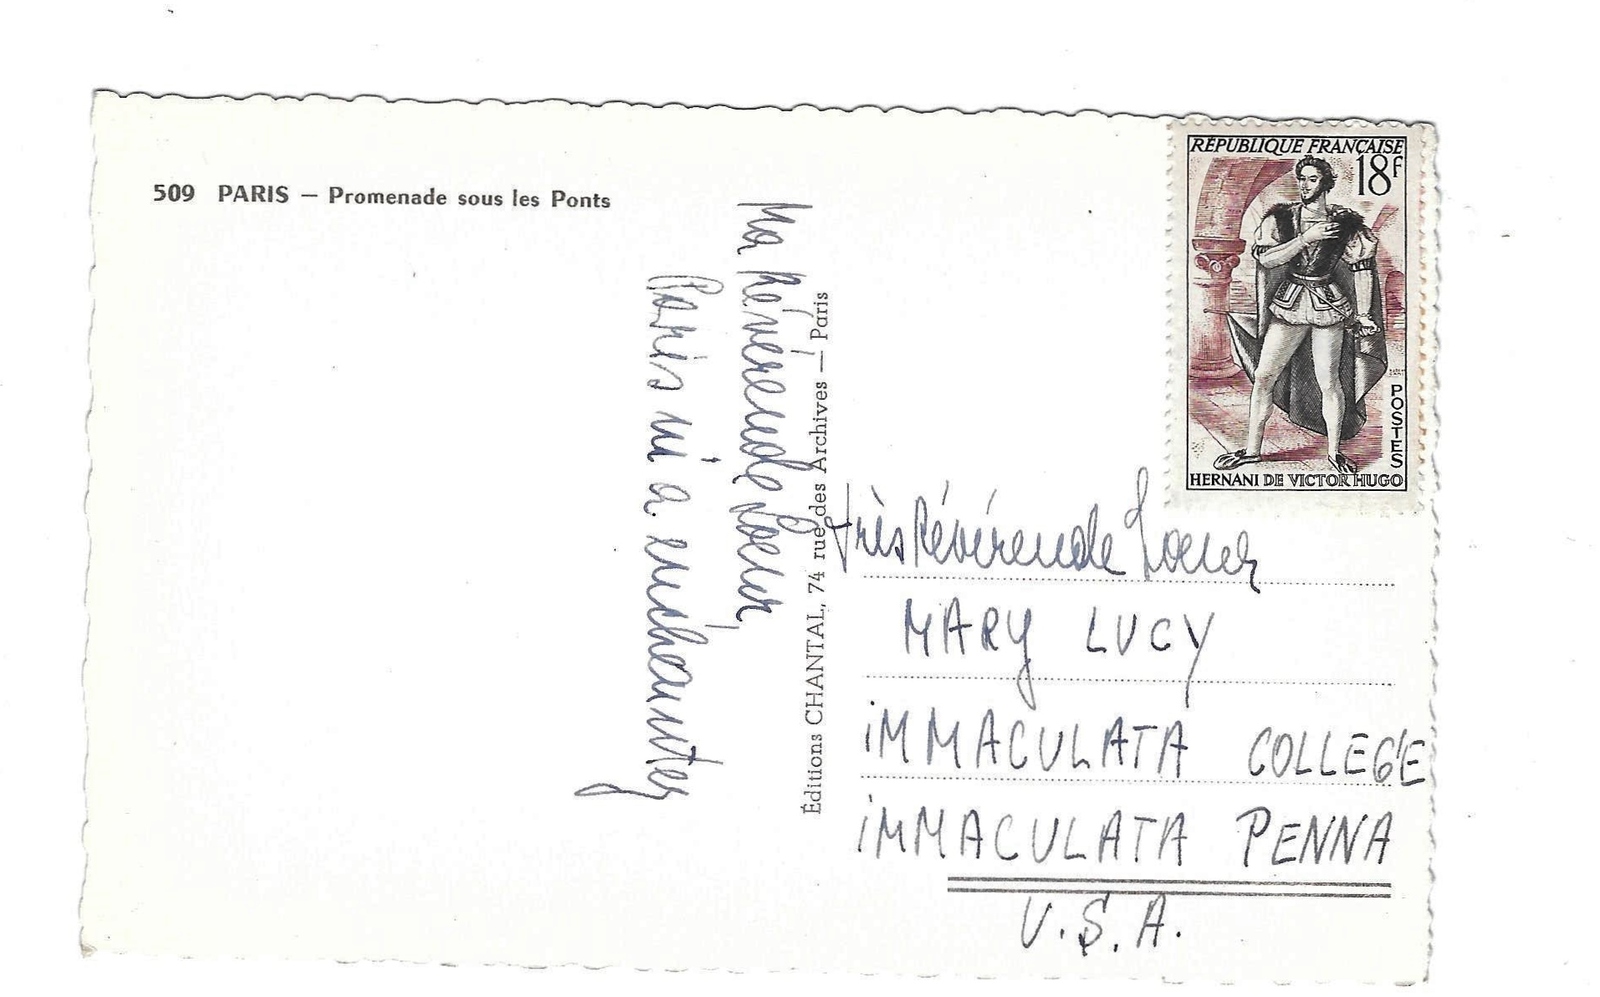 509 PARIS — Promenade sous les Ponts
Ma Révérende Soeur,
Paris m'a enchantée
Éditions CHANTAL, 74 rue des Archives — Paris
RÉPUBLIQUE FRANÇAISE
18F
POSTES
HERNANI DE VICTOR HUGO
très Révérende Soeur
MARY LUCY
iMMACULATA COLLEGE
iMMACULATA PENNA
U.S.A.